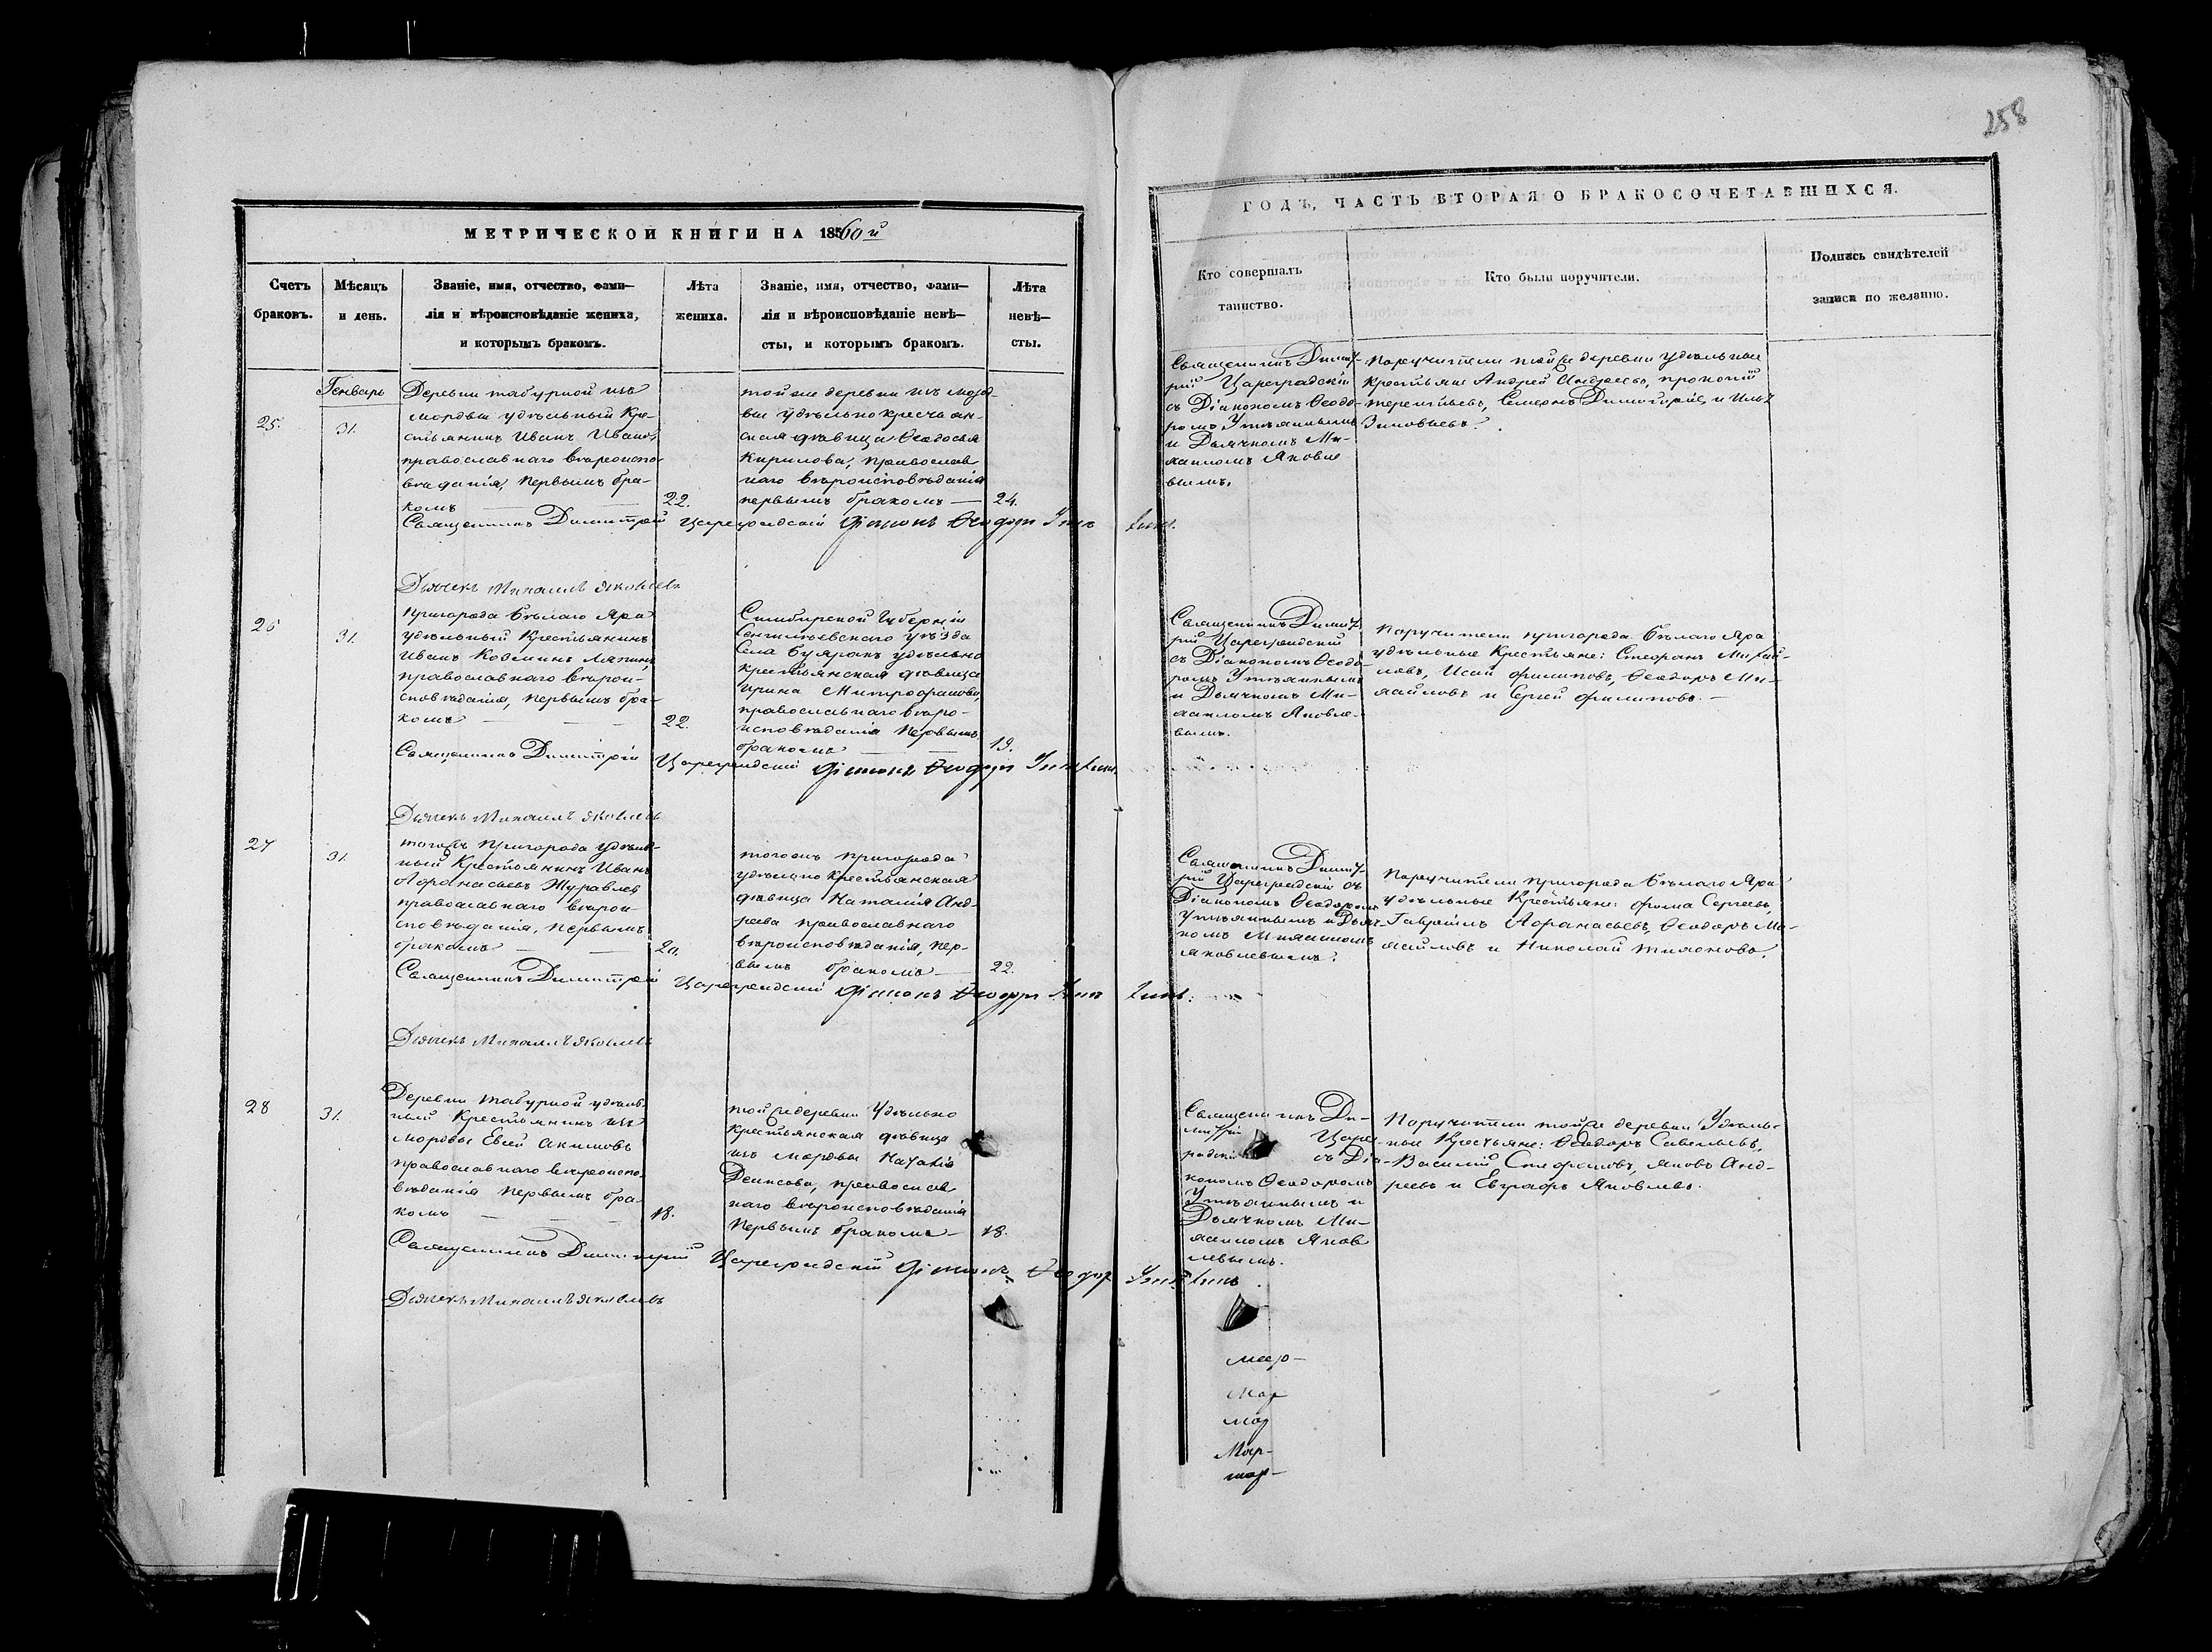 258
МЕТРИЧЕСКОЙ КНИГИ НА 1860й
ГОДЪ, ЧАСТЬ ВТОРАЯ О БРАКОСОЧЕТАВШИХСЯ.
Счетъ
браковъ.
Мѣсяцъ
и день.
Званіе, имя, отчество, фами—
лія и вѣроисповѣданіе жениха,
и которымъ бракомъ.
Лѣта
жениха.
Званіе, имя, отчество, фами—
лія и вѣроисповѣданіе невѣ—
сты, и которымъ бракомъ.
Лѣта
невѣ—
сты.
Кто совершалъ
таинство.
Кто были поручители.
Подпись свидѣтелей
записи по желанію.
Генварь
25.
31.
Деревни Табурной изъ
мордвы удѣльный Кре-
стьянинъ Иванъ Ивановъ
православнаго вѣроиспо-
вѣданія, первымъ бра-
комъ —
22.
тойже деревни изъ морд-
вы удѣльнокрестьян-
ская дѣвица Ѳеодосья
Кирилова, православ
наго вѣроисповѣданія
первымъ бракомъ —
24.
Священникъ Димит-
рій Цареградскій
съ Діакономъ Ѳеодо-
ромъ
и Дьячкомъ Ми-
хаиломъ Яковле
вымъ.
Поручители тойже деревни удѣльные
Крестьяне Андрей Андреевъ, Прокопій
Терентьевъ, Семенъ Димитріевъ и Илья
Зиновьевъ.
Священникъ Димитрій Цареградскій Діаконъ Ѳеодоръ
Дьячекъ Михаилъ Яковлевъ
26
31.
Пригорода Бѣлаго Яра
удѣльный Крестьянинъ
Иванъ Козминъ Лапинъ,
православнаго вѣрои-
сповѣданія, первымъ бра-
комъ — —
22.
Симбирской Губерніи
Сенгилѣевскаго уѣзда
Села Буяракъ удѣльно
крестьянская дѣвица
Ирина Митрофанова,
православнаго вѣро-
исповѣданія первымъ
бракомъ — —
19.
Священникъ Димит-
рій Цареградскій
съ Діакономъ Ѳеодо-
ромъ
и Дьячкомъ Ми-
хаиломъ Яковле-
вымъ.
Поручители пригорода Бѣлаго Яра
удѣльные Крестьяне: Стефанъ Михай-
ловъ, Исай Филиповъ, Ѳеодоръ Ми-
хайловъ и Сергей Филиповъ. —
Священникъ Димитрій Цареградскій Діаконъ Ѳеодоръ
Дьячекъ Михаилъ Яковлевъ
27
31.
тогожъ Пригорода удѣль-
ный Крестьянинъ Иванъ
Афанасьевъ Журавлев
православнаго вѣрои-
сповѣданія, первымъ
бракомъ — —
20.
тогожъ пригорода
удѣльно Крестьянская
дѣвица Наталія Анд-
реева православнаго
вѣроисповѣданія, пер-
вымъ бракомъ —
22.
Священникъ Димит-
рій Цареградскій съ
Діакономъ Ѳеодоромъ
и Дьяч-
комъ Михаиломъ
Яковлевымъ.
Поручители Пригорода Бѣлаго Яра
удѣльные Крестьяне: Фома Сергеевъ,
Гавриилъ Афанасьевъ, Ѳеодоръ Ми-
хайловъ и Николай Тихоновъ.
Священникъ Димитрій Цареградскій Діаконъ Ѳеодоръ
Дьячекъ Михаилъ Яковлевъ
28
31.
Деревни Табурной удѣль-
ный Крестьянинъ изъ
мордвы Евсей Акимовъ
православнаго вѣроиспо-
вѣданія первымъ бра-
комъ — — —
18.
тойже деревни Удѣльно
Крестьянская дѣвица
изъ мордвы Наталія
Денисова, православ
наго вѣроисповѣданія
первымъ бракомъ —
18.
Священникъ Ди-
митрій Царег
радскій съ Діа-
кономъ Ѳеодоромъ
и
Дьячкомъ Ми-
хаиломъ Яков
левымъ.
Поручители тойже деревни Удѣль-
ные Крестьяне: Ѳеодоръ Савельевъ,
Василій Стефановъ, Яковъ Анд-
реевъ и Евграфъ Яковлевъ.
Священникъ Димитрій Цареградскій Діаконъ Ѳеодоръ
Дьячекъ Михаилъ Яковлевъ